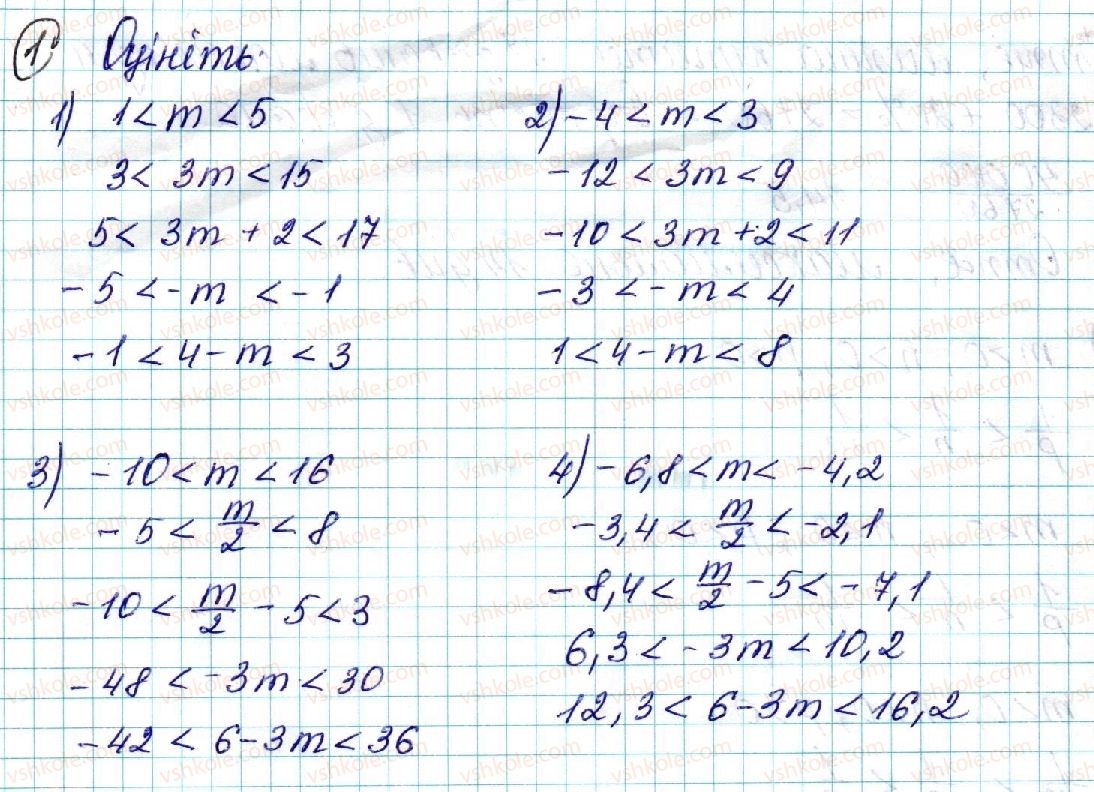 1 Оцініть:
1) 1 < m < 5
3 < 3m < 15
5 < 3m + 2 < 17
-5 < -m < -1
-1 < 4 - m < 3
2) -4 < m < 3
-12 < 3m < 9
-10 < 3m + 2 < 11
-3 < -m < 4
1 < 4 - m < 8
3) -10 < m < 16
-5 < m/2 < 8
-10 < m/2 - 5 < 3
-48 < -3m < 30
-42 < 6 - 3m < 36
4) -6,8 < m < -4,2
-3,4 < m/2 < -2,1
-8,4 < m/2 - 5 < -7,1
6,3 < -3m < 10,2
12,3 < 6 - 3m < 16,2
vshkole.com